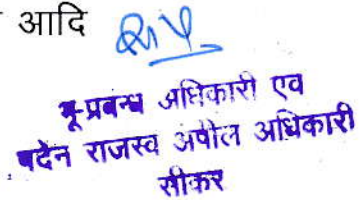 आदि
भू-प्रबन्ध अधिकारी एव
पदेन राजस्व अपील अधिकारी
सीकर